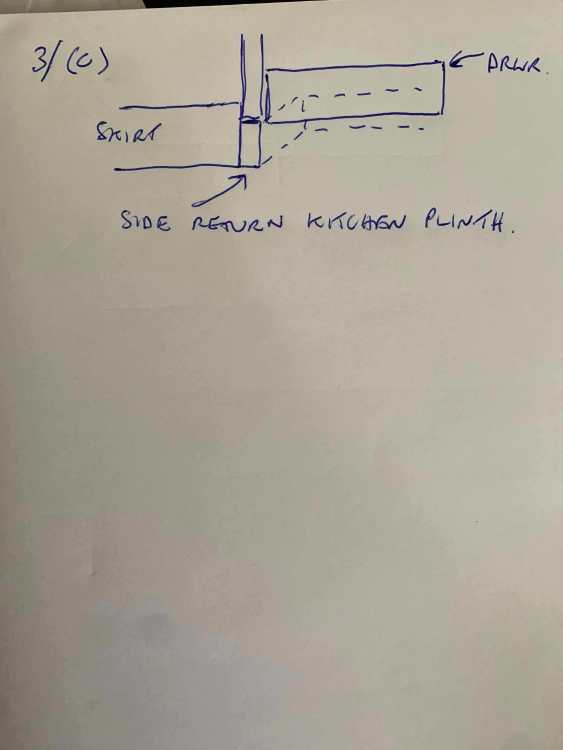 3/(c)
DRWR.
SKIRT
SIDE RETURN KITCHEN PLINTH.